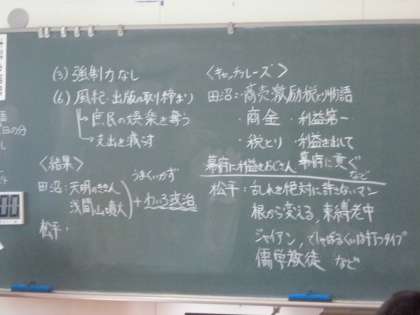 (5) 強制力なし
(6) 風紀・出版の取り締まり
庶民の娯楽を奪う
→支出を減す
<結果>
うまくいかず
田沼:天明のききん
浅間山噴火
+わいろ政治
松平・
<キャッチフレーズ>
田沼:・商売激励税とり物語
・商金・利益第一
・税とり・利益を出して
幕府に利益をおじさん 幕府に貢ぐ
など
松平:乱れを絶対に許さないマン
根から変える,束縛老中
ジャイアン,でしゃばるくいは打つタイプ
儒学教徒 など